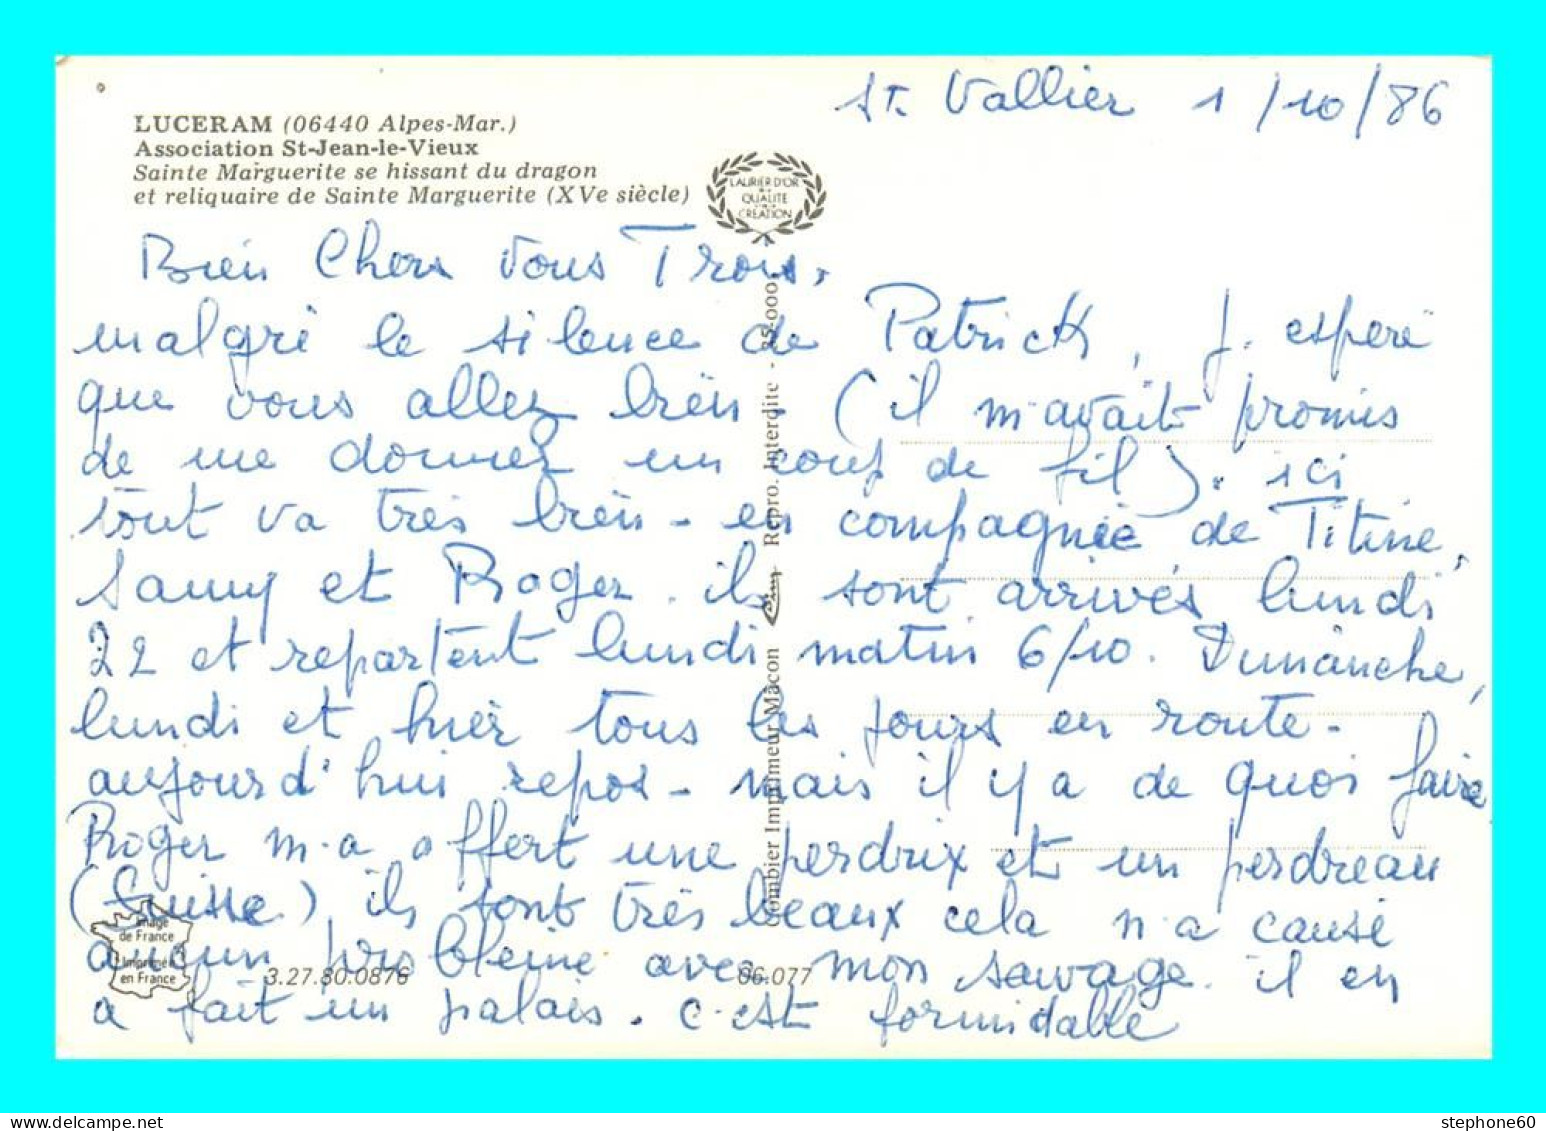 St. Vallier 1/10/86
LUCERAM (06440 Alpes-Mar.)
Association St-Jean-le-Vieux
Sainte Marguerite se hissant du dragon
et reliquaire de Sainte Marguerite (XVe siècle)
LAURIER D'OR
QUALITE
CREATION
Bien Chers Vous Trois,
malgré le silence de Patrick, J. espère
que vous allez bien - (il m'avait promis
de me donner un coup de fil). ici
tout va très bien - en compagnie de Titine,
Samy et Roger. ils sont arrivés lundi
22 et repartent lundi matin 6/10. Dimanche,
lundi et hier tous les jours en route -
aujourd'hui repos - mais il y a de quoi faire
Roger m'a offert une perdrix et un perdreau
(Suisse), ils sont très beaux cela n'a causé
aucun problème avec mon sauvage. il en
a fait un palais. c'est formidable
Image
de France
Imprimé
en France
3.27.80.0876
06.077
Combier Imprimeur Mâcon
Repro. Interdite - 25.000
stephone60